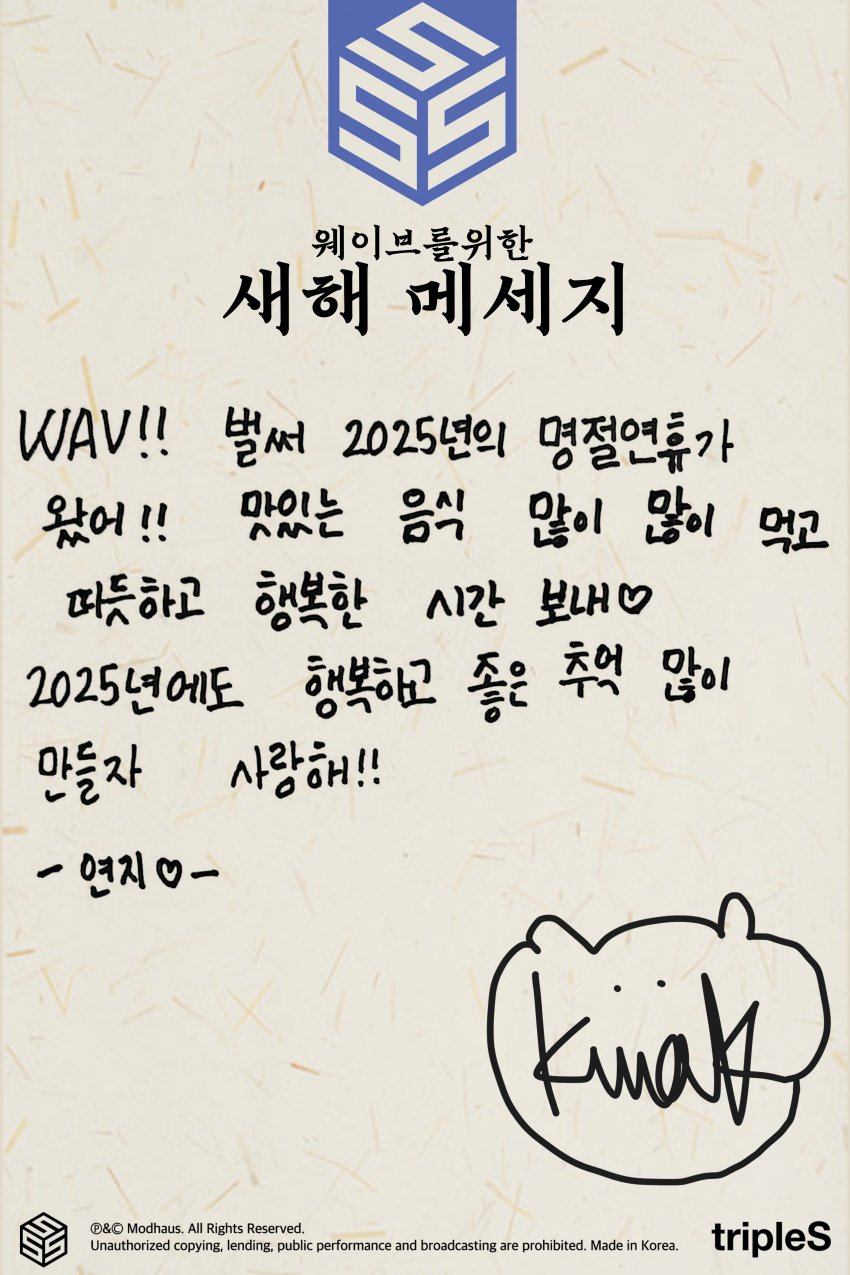 웨이브를위한
새해 메세지
WAV!! 벌써 2025년의 명절연휴가
왔어!! 맛있는 음식 많이 많이 먹고
따듯하고 행복한 시간 보내♡
2025년에도 행복하고 좋은 추억 많이
만들자 사랑해!!
- 연지♡-
Kwak
℗&© Modhaus. All Rights Reserved.
Unauthorized copying, lending, public performance and broadcasting are prohibited. Made in Korea.
tripleS